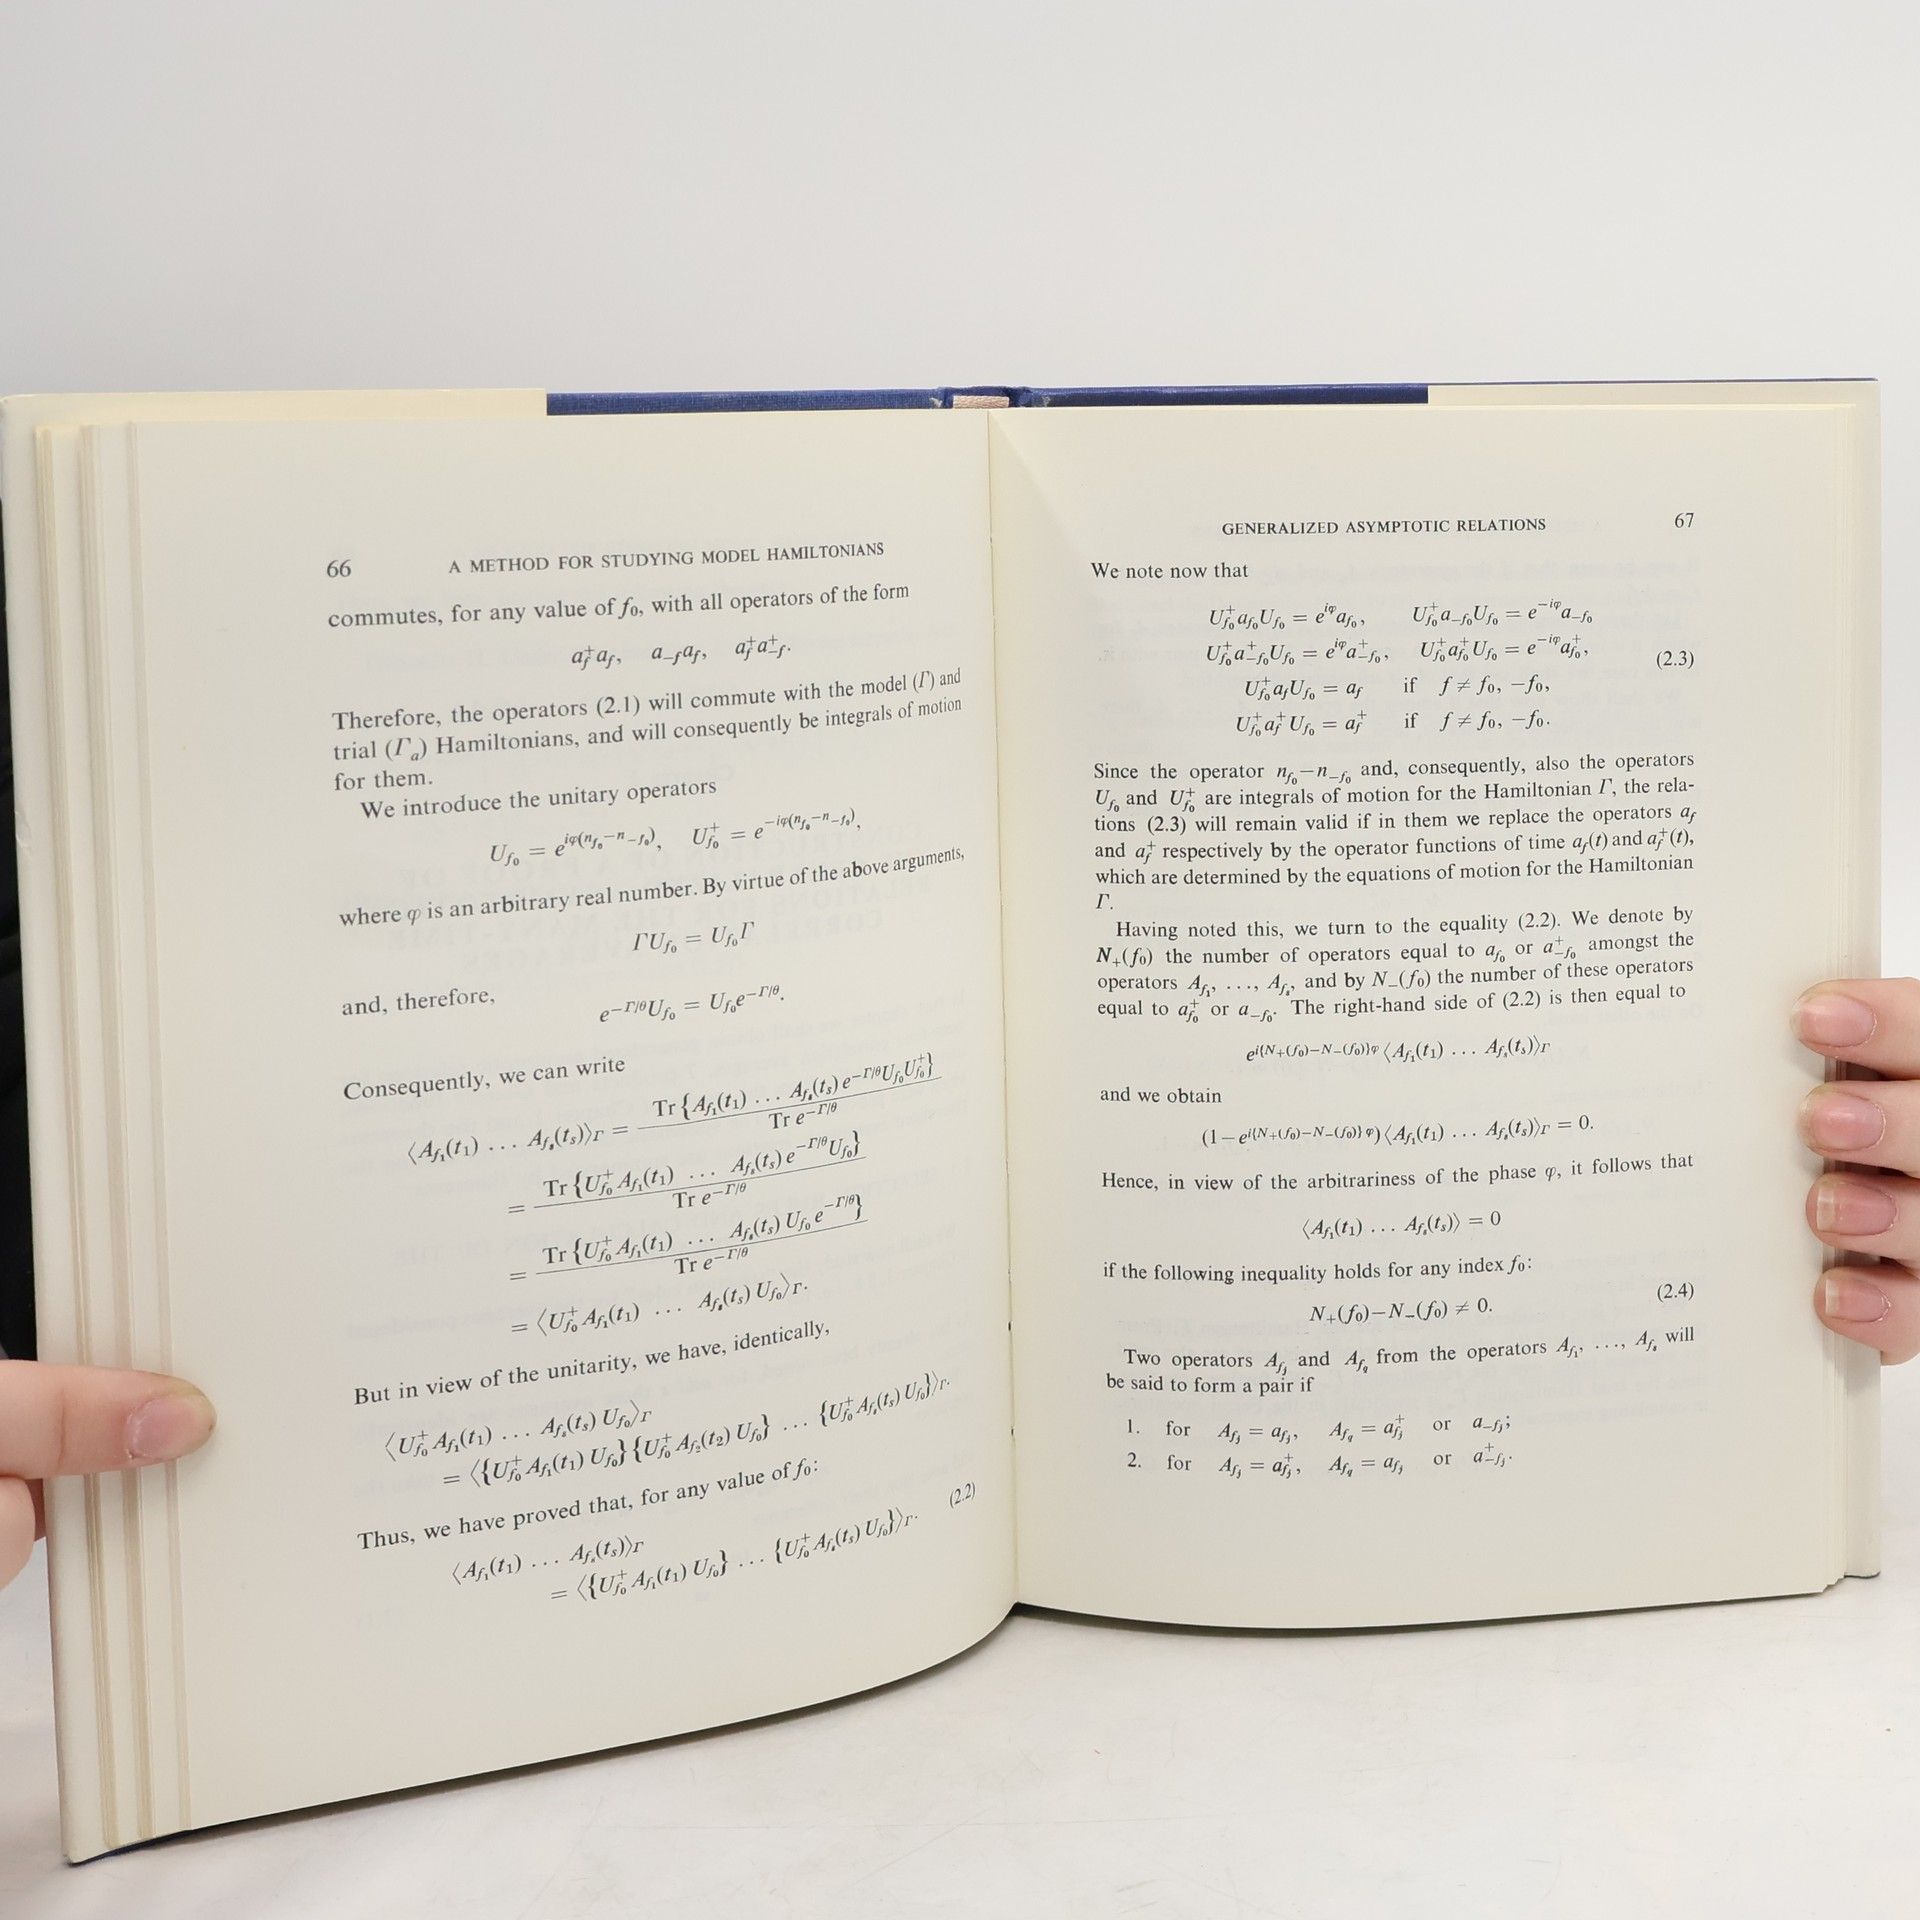 66 A METHOD FOR STUDYING MODEL HAMILTONIANS
commutes, for any value of f₀, with all operators of the form
a_f^+ a_f, a_{-f} a_f, a_f^+ a_{-f}^+.
Therefore, the operators (2.1) will commute with the model (Γ) and
trial (Γ_a) Hamiltonians, and will consequently be integrals of motion
for them.
We introduce the unitary operators
U_{f₀} = e^{iφ(n_{f₀}−n_{−f₀})}, U_{f₀}^+ = e^{−iφ(n_{f₀}−n_{−f₀})},
where φ is an arbitrary real number. By virtue of the above arguments,
ΓU_{f₀} = U_{f₀}Γ
and, therefore,
e^{−Γ/θ}U_{f₀} = U_{f₀}e^{−Γ/θ}.
Consequently, we can write
⟨A_{f₁}(t₁) ... A_{f_s}(t_s)⟩_Γ = Tr{A_{f₁}(t₁) ... A_{f_s}(t_s) e^{−Γ/θ}U_{f₀}U_{f₀}^+} / Tr e^{−Γ/θ}
= Tr{U_{f₀}^+ A_{f₁}(t₁) ... A_{f_s}(t_s) e^{−Γ/θ}U_{f₀}} / Tr e^{−Γ/θ}
= Tr{U_{f₀}^+ A_{f₁}(t₁) ... A_{f_s}(t_s) U_{f₀} e^{−Γ/θ}} / Tr e^{−Γ/θ}
= ⟨U_{f₀}^+ A_{f₁}(t₁) ... A_{f_s}(t_s) U_{f₀}⟩_Γ.
But in view of the unitarity, we have, identically,
⟨U_{f₀}^+ A_{f₁}(t₁) ... A_{f_s}(t_s) U_{f₀}⟩_Γ
= ⟨{U_{f₀}^+ A_{f₁}(t₁) U_{f₀}} {U_{f₀}^+ A_{f₂}(t₂) U_{f₀}} ... {U_{f₀}^+ A_{f_s}(t_s) U_{f₀}}⟩_Γ.
Thus, we have proved that, for any value of f₀:
⟨A_{f₁}(t₁) ... A_{f_s}(t_s)⟩_Γ (2.2)
= ⟨{U_{f₀}^+ A_{f₁}(t₁) U_{f₀}} ... {U_{f₀}^+ A_{f_s}(t_s) U_{f₀}}⟩_Γ.
GENERALIZED ASYMPTOTIC RELATIONS 67
We note now that
U_{f₀}^+ a_{f₀} U_{f₀} = e^{iφ} a_{f₀}, U_{f₀}^+ a_{−f₀} U_{f₀} = e^{−iφ} a_{−f₀}
U_{f₀}^+ a_{−f₀}^+ U_{f₀} = e^{iφ} a_{−f₀}^+, U_{f₀}^+ a_{f₀}^+ U_{f₀} = e^{−iφ} a_{f₀}^+, (2.3)
U_{f₀}^+ a_f U_{f₀} = a_f if f ≠ f₀, −f₀,
U_{f₀}^+ a_f^+ U_{f₀} = a_f^+ if f ≠ f₀, −f₀.
Since the operator n_{f₀}−n_{−f₀} and, consequently, also the operators
U_{f₀} and U_{f₀}^+ are integrals of motion for the Hamiltonian Γ, the rela-
tions (2.3) will remain valid if in them we replace the operators a_f
and a_f^+ respectively by the operator functions of time a_f(t) and a_f^+(t),
which are determined by the equations of motion for the Hamiltonian
Γ.
Having noted this, we turn to the equality (2.2). We denote by
N₊(f₀) the number of operators equal to a_{f₀} or a_{−f₀}^+ amongst the
operators A_{f₁}, ..., A_{f_s}, and by N₋(f₀) the number of these operators
equal to a_{f₀}^+ or a_{−f₀}. The right-hand side of (2.2) is then equal to
e^{i{N₊(f₀)−N₋(f₀)}φ} ⟨A_{f₁}(t₁) ... A_{f_s}(t_s)⟩_Γ
and we obtain
(1−e^{i{N₊(f₀)−N₋(f₀)}φ}) ⟨A_{f₁}(t₁) ... A_{f_s}(t_s)⟩_Γ = 0.
Hence, in view of the arbitrariness of the phase φ, it follows that
⟨A_{f₁}(t₁) ... A_{f_s}(t_s)⟩ = 0
if the following inequality holds for any index f₀:
N₊(f₀)−N₋(f₀) ≠ 0. (2.4)
Two operators A_{f_j} and A_{f_q} from the operators A_{f₁}, ..., A_{f_s} will
be said to form a pair if
1. for A_{f_j} = a_{f_j}, A_{f_q} = a_{f_j}^+ or a_{−f_j};
2. for A_{f_j} = a_{f_j}^+, A_{f_q} = a_{f_j} or a_{−f_j}^+.